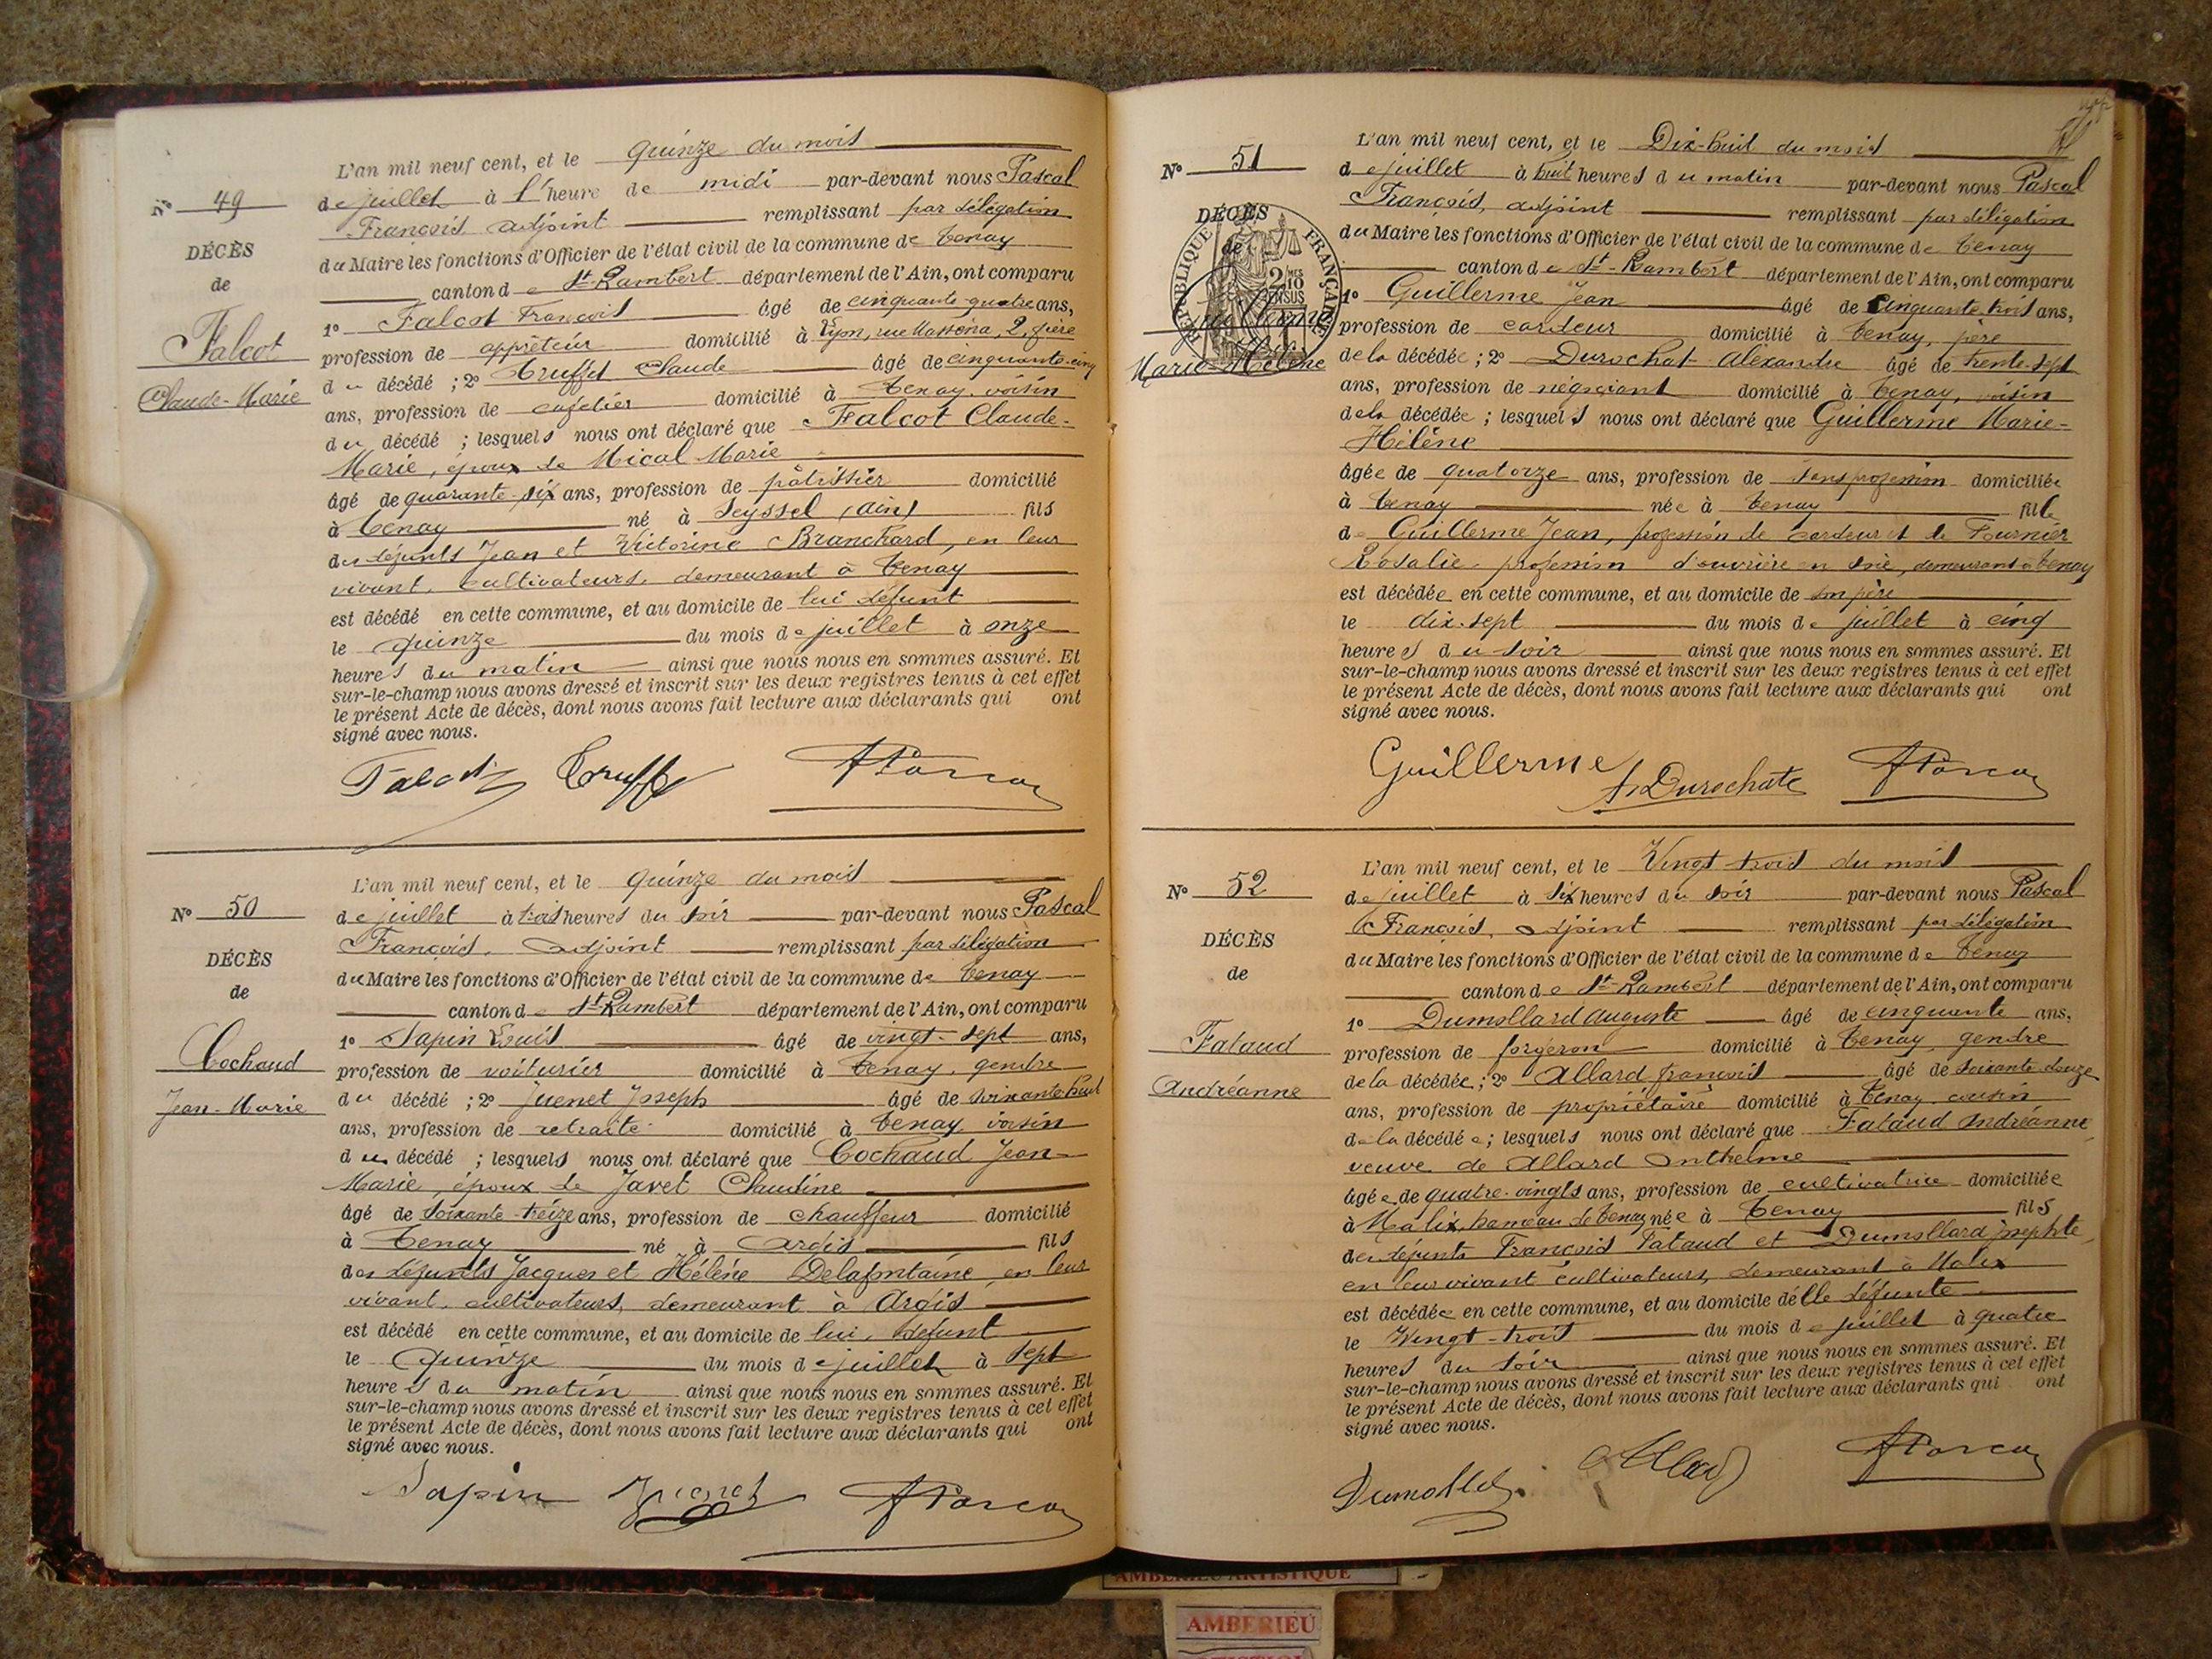 L'an mil neuf cent, et le quinze du mois
No 49
de juillet à l'heure de midi par-devant nous Pascal
François adjoint remplissant par délégation
DÉCÈS
du Maire les fonctions d'Officier de l'état civil de la commune de Tenay
de
canton de St-Rambert département de l'Ain, ont comparu
1o Falcot François âgé de cinquante-quatre ans,
Falcot
profession de apprêteur domicilié à Lyon, rue Masséna, 2, frère
Claude-Marie
du décédé ; 2o Truffet Claude âgé de cinquante-cinq
ans, profession de cafetier domicilié à Tenay, voisin
du décédé ; lesquels nous ont déclaré que Falcot Claude-
Marie, époux de Mical Marie
âgé de quarante-six ans, profession de pâtissier domicilié
à Tenay né à Seyssel (Ain) fils
des défunts Jean et Victorine Branchard, en leur
vivant, cultivateurs, demeurant à Tenay
est décédé en cette commune, et au domicile de lui défunt
le quinze du mois de juillet à onze
heures du matin ainsi que nous nous en sommes assuré. Et
sur-le-champ nous avons dressé et inscrit sur les deux registres tenus à cet effet
le présent Acte de décès, dont nous avons fait lecture aux déclarants qui ont
signé avec nous.
Falcot Truffet FPascal
L'an mil neuf cent, et le quinze du mois
No 50
de juillet à trois heures du soir par-devant nous Pascal
François, adjoint remplissant par délégation
DÉCÈS
du Maire les fonctions d'Officier de l'état civil de la commune de Tenay
de
canton de St-Rambert département de l'Ain, ont comparu
1o Sapin Louis âgé de vingt-sept ans,
Cochaud
profession de voiturier domicilié à Tenay, gendre
Jean-Marie
du décédé ; 2o Juenet Joseph âgé de soixante-huit
ans, profession de retraité domicilié à Tenay, voisin
du décédé ; lesquels nous ont déclaré que Cochaud Jean-
Marie, époux de Javet Claudine
âgé de soixante-treize ans, profession de chauffeur domicilié
à Tenay né à Argis fils
des défunts Jacques et Hélène Delafontaine, en leur
vivant, cultivateurs, demeurant à Argis
est décédé en cette commune, et au domicile de lui, défunt
le quinze du mois de juillet à sept
heures du matin ainsi que nous nous en sommes assuré. Et
sur-le-champ nous avons dressé et inscrit sur les deux registres tenus à cet effet
le présent Acte de décès, dont nous avons fait lecture aux déclarants qui ont
signé avec nous.
Sapin Juenet FPascal
L'an mil neuf cent, et le Dix-huit du mois
No 51
de juillet à huit heures du matin par-devant nous Pascal
François, adjoint remplissant par délégation
DÉCÈS
RÉPUBLIQUE FRANÇAISE
du Maire les fonctions d'Officier de l'état civil de la commune de Tenay
de
canton de St-Rambert département de l'Ain, ont comparu
1o Guillerme Jean âgé de cinquante-trois ans,
profession de cardeur domicilié à Tenay, père
Marie-Hélène
de la décédée ; 2o Durochat Alexandre âgé de trente-sept
ans, profession de négociant domicilié à Tenay, voisin
de la décédée ; lesquels nous ont déclaré que Guillerme Marie-
Hélène
âgée de quatorze ans, profession de sans profession domiciliée
à Tenay née à Tenay fille
de Guillerme Jean, profession de cardeur et de Fournier
Rosalie, profession d'ouvrière en soie, demeurant à Tenay
est décédée en cette commune, et au domicile de son père
le dix-sept du mois de juillet à cinq
heures du soir ainsi que nous nous en sommes assuré. Et
sur-le-champ nous avons dressé et inscrit sur les deux registres tenus à cet effet
le présent Acte de décès, dont nous avons fait lecture aux déclarants qui ont
signé avec nous.
Guillerme A. Durochat FPascal
L'an mil neuf cent, et le Vingt-trois du mois
No 52
de juillet à six heures du soir par-devant nous Pascal
François, adjoint remplissant par délégation
DÉCÈS
du Maire les fonctions d'Officier de l'état civil de la commune de Tenay
de
canton de St-Rambert département de l'Ain, ont comparu
1o Dumollard Auguste âgé de cinquante ans,
Fataud
profession de forgeron domicilié à Tenay, gendre
Andréanne
de la décédée ; 2o Allard françois âgé de soixante-douze
ans, profession de propriétaire domicilié à Tenay, cousin
de la décédée ; lesquels nous ont déclaré que Fataud Andréanne,
veuve de Allard Anthelme
âgée de quatre-vingts ans, profession de cultivatrice domiciliée
à Malix, hameau de Tenay née à Tenay fils
des défunts François Fataud et Dumollard Josephte,
en leur vivant cultivateurs, demeurant à Malix
est décédée en cette commune, et au domicile d'elle défunte
le Vingt-trois du mois de juillet à quatre
heures du soir ainsi que nous nous en sommes assuré. Et
sur-le-champ nous avons dressé et inscrit sur les deux registres tenus à cet effet
le présent Acte de décès, dont nous avons fait lecture aux déclarants qui ont
signé avec nous.
Dumollard Allard FPascal
AMBERIEU ARTISTIQUE
AMBERIEU